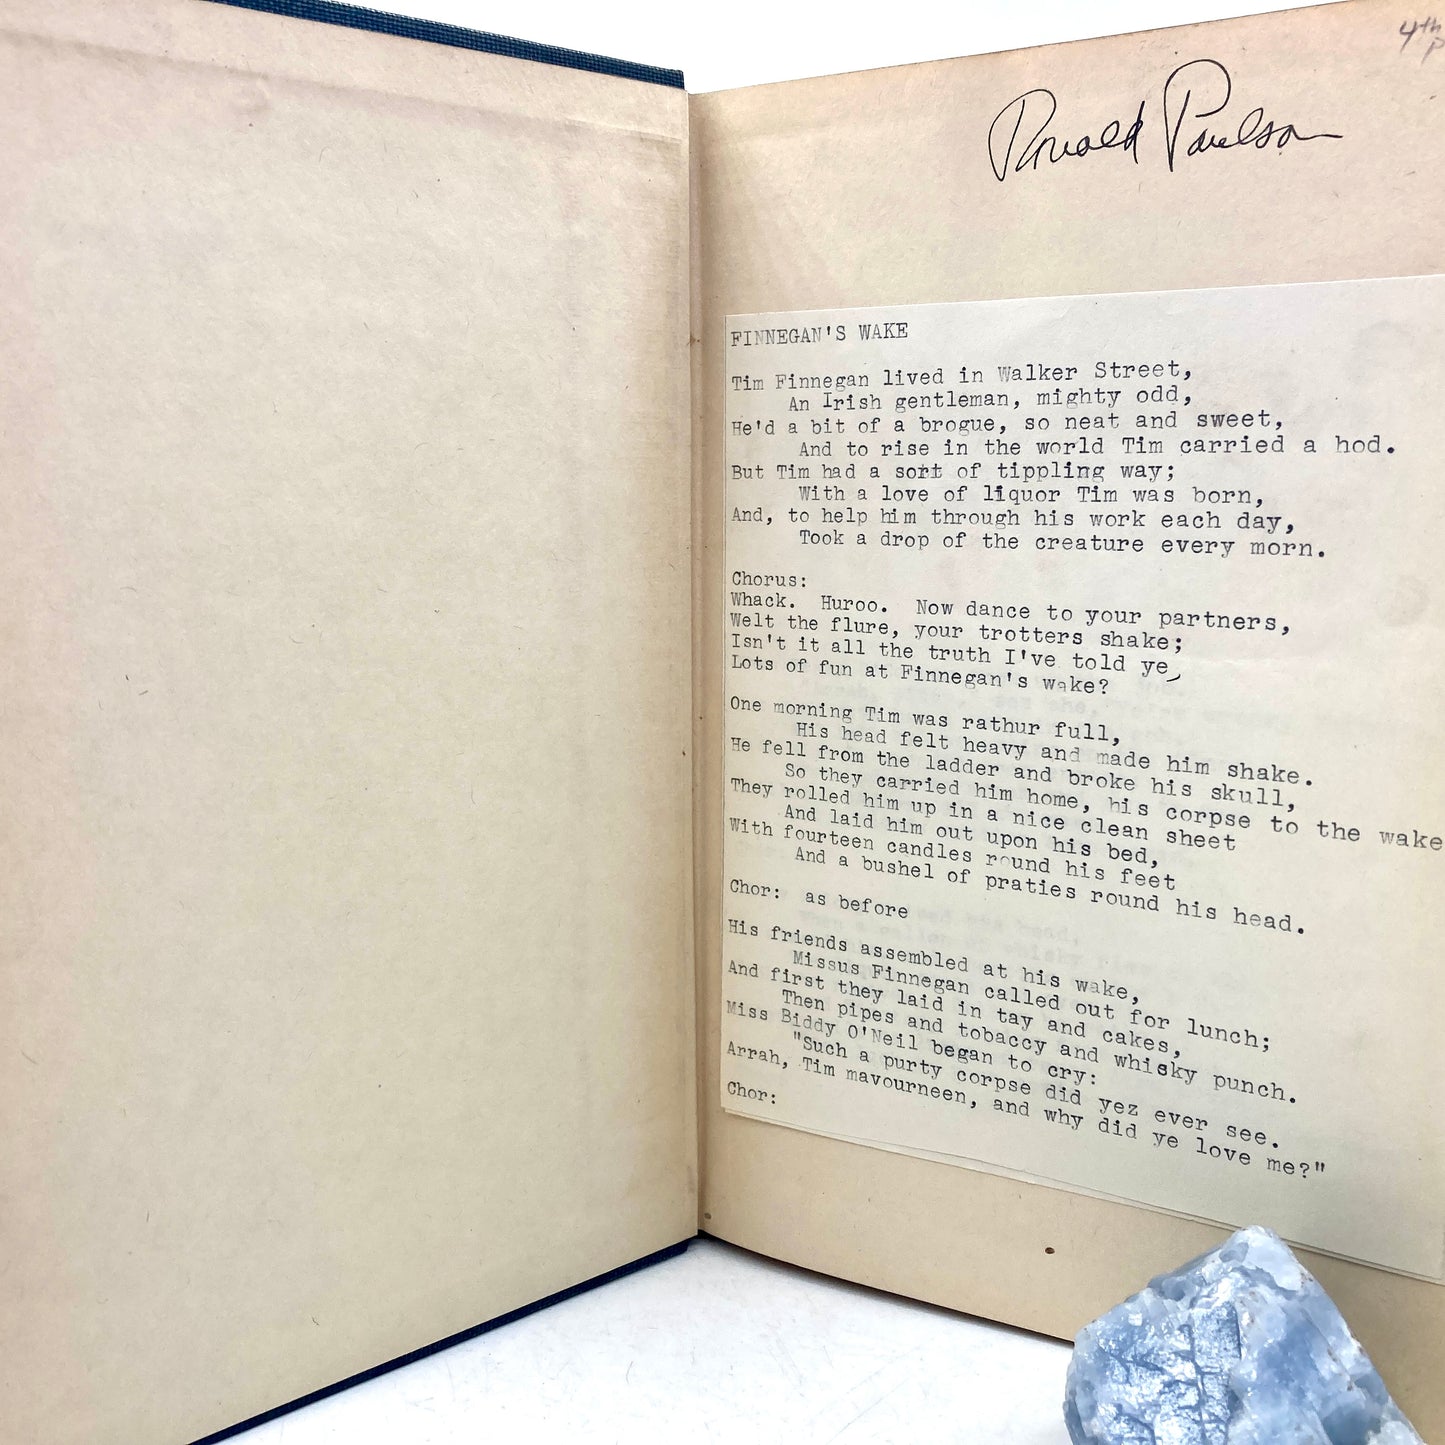 4th
P
Ronald Paulson
FINNEGAN'S WAKE
Tim Finnegan lived in Walker Street,
An Irish gentleman, mighty odd,
He'd a bit of a brogue, so neat and sweet,
And to rise in the world Tim carried a hod.
But Tim had a sort of tippling way;
With a love of liquor Tim was born,
And, to help him through his work each day,
Took a drop of the creature every morn.
Chorus:
Whack. Huroo. Now dance to your partners,
Welt the flure, your trotters shake;
Isn't it all the truth I've told ye,
Lots of fun at Finnegan's wake?
One morning Tim was rathur full,
His head felt heavy and made him shake.
He fell from the ladder and broke his skull,
So they carried him home, his corpse to the wake
They rolled him up in a nice clean sheet
And laid him out upon his bed,
With fourteen candles round his feet
And a bushel of praties round his head.
Chor: as before
His friends assembled at his wake,
Missus Finnegan called out for lunch;
And first they laid in tay and cakes,
Then pipes and tobaccy and whisky punch.
Miss Biddy O'Neil began to cry:
"Such a purty corpse did yez ever see.
Arrah, Tim mavourneen, and why did ye love me?"
Chor: